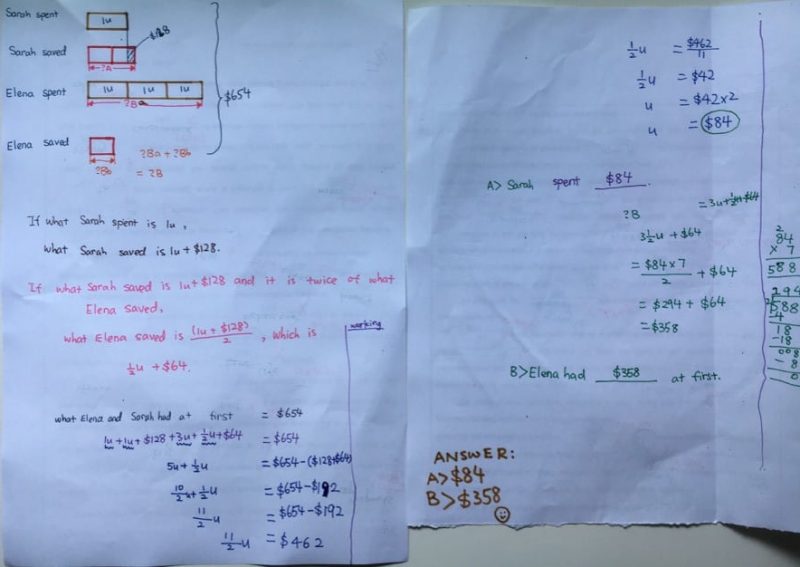 Sarah spent 1u
$128
Sarah saved
?A
Elena spent 1u 1u 1u
?Ba
$654
Elena saved
?Bb
?Ba + ?Bb
= ?B
If what Sarah spent is 1u,
what Sarah saved is 1u + $128.
If what Sarah saved is 1u + $128 and it is twice of what
Elena saved,
what Elena saved is (1u + $128)/2, which is
½u + $64.
working
what Elena and Sarah had at first = $654
1u + 1u + $128 + 3u + ½u + $64 = $654
5u + ½u = $654 - ($128 + $64)
10/2u + ½u = $654 - $192
11/2 u = $654 - $192
11/2 u = $462
½u = $462/11
½u = $42
u = $42 × 2
u = $84
A> Sarah spent $84.
?B = 3u + ½u + $64
3½u + $64
= $84 × 7/2 + $64
= $294 + $64
= $358
B> Elena had $358 at first.
2
84
× 7
588
294
588
4
18
-18
008
- 8
0
ANSWER:
A> $84
B> $358